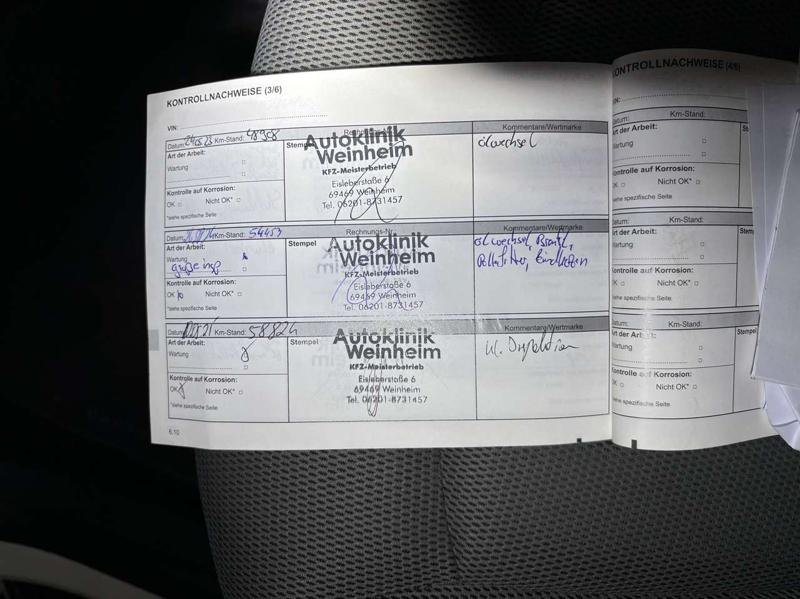 KONTROLLNACHWEISE (3/6)
VIN:
Datum: Km-Stand: 48908
Rechnungs-Nr.
Kommentare/Wertmarke
Art der Arbeit:
Wartung
Kontrolle auf Korrosion:
OK Nicht OK*
*siehe spezifische Seite
Stempel
Autoklinik
Weinheim
KFZ-Meisterbetrieb
Eisleberstaße 6
69469 Weinheim
Tel. 06201-8731457
ölwechsel
Datum: Km-Stand: 54453
Rechnungs-Nr.
Kommentare/Wertmarke
Art der Arbeit:
Wartung
große insp
Kontrolle auf Korrosion:
OK Nicht OK*
*siehe spezifische Seite
Stempel
Autoklinik
Weinheim
KFZ-Meisterbetrieb
Eisleberstaße 6
69469 Weinheim
Tel. 06201-8731457
ölwechsel,
Datum: Km-Stand: 58824
Kommentare/Wertmarke
Art der Arbeit:
Wartung
Kontrolle auf Korrosion:
OK Nicht OK*
*siehe spezifische Seite
Stempel
Autoklinik
Weinheim
KFZ-Meisterbetrieb
Eisleberstaße 6
69469 Weinheim
Tel. 06201-8731457
kl. Inspektion
6.10
KONTROLLNACHWEISE (4/6)
VIN:
Datum: Km-Stand:
Art der Arbeit:
Wartung
Kontrolle auf Korrosion:
OK Nicht OK*
*siehe spezifische Seite
Datum: Km-Stand:
Stempel
Art der Arbeit:
Wartung
Kontrolle auf Korrosion:
OK Nicht OK*
*siehe spezifische Seite
Datum: Km-Stand:
Stempel
Art der Arbeit:
Wartung
Kontrolle auf Korrosion:
OK Nicht OK*
*siehe spezifische Seite